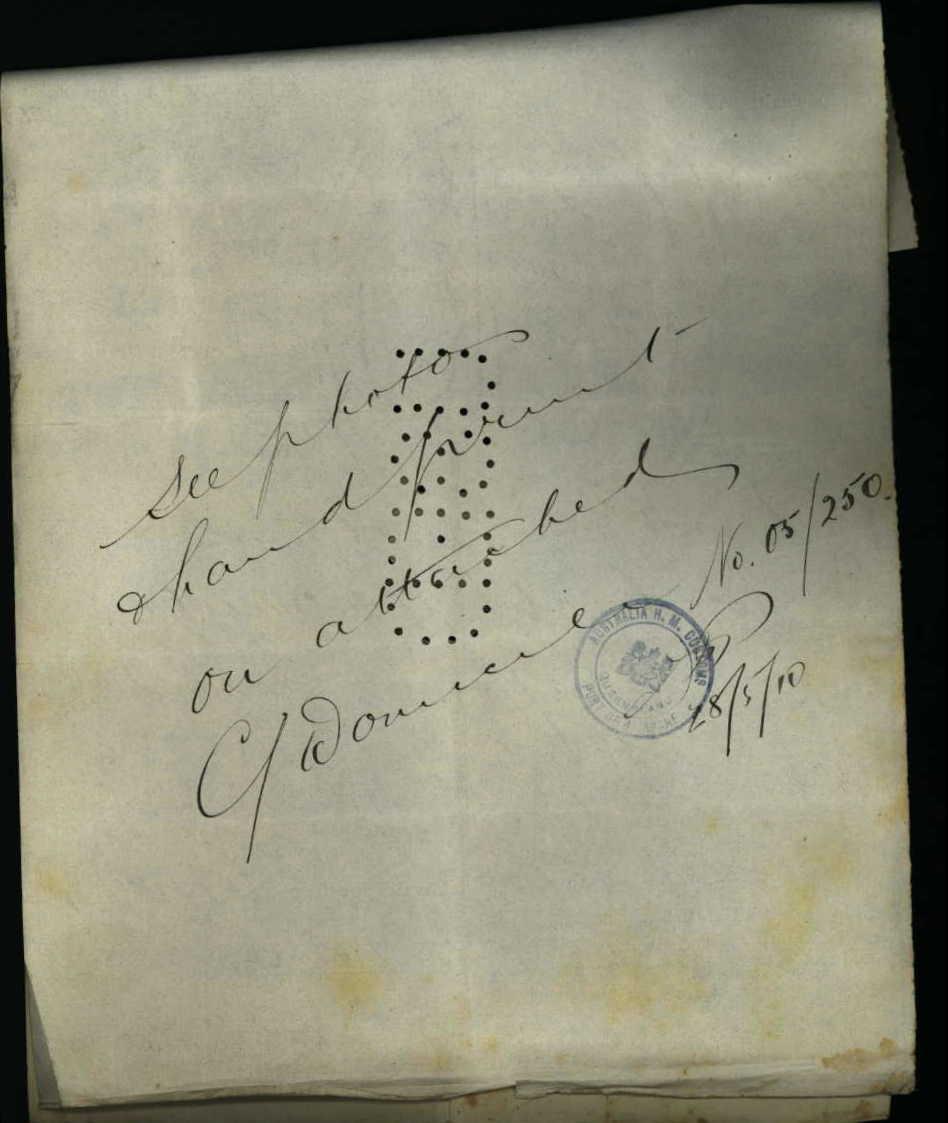 See photo
& hand print
on attached
C/Domicile No. 05/250.
AUSTRALIA H. M. CUSTOMS
QUEENSLAND
28/5/10